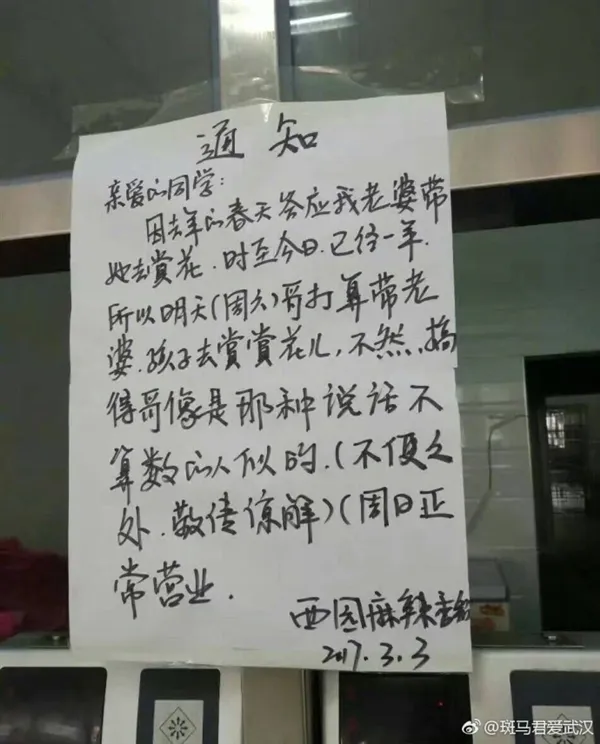 通知
亲爱的同学:
因去年的春天答应我老婆带
她去赏花.时至今日.已经一年.
所以明天(周六)哥打算带老
婆.孩子去赏赏花儿,不然.搞
得哥像是那种说话不
算数的人似的.(不便之
处.敬请谅解)(周日正
常营业.
西园麻辣香锅
2017.3.3
@斑马君爱武汉